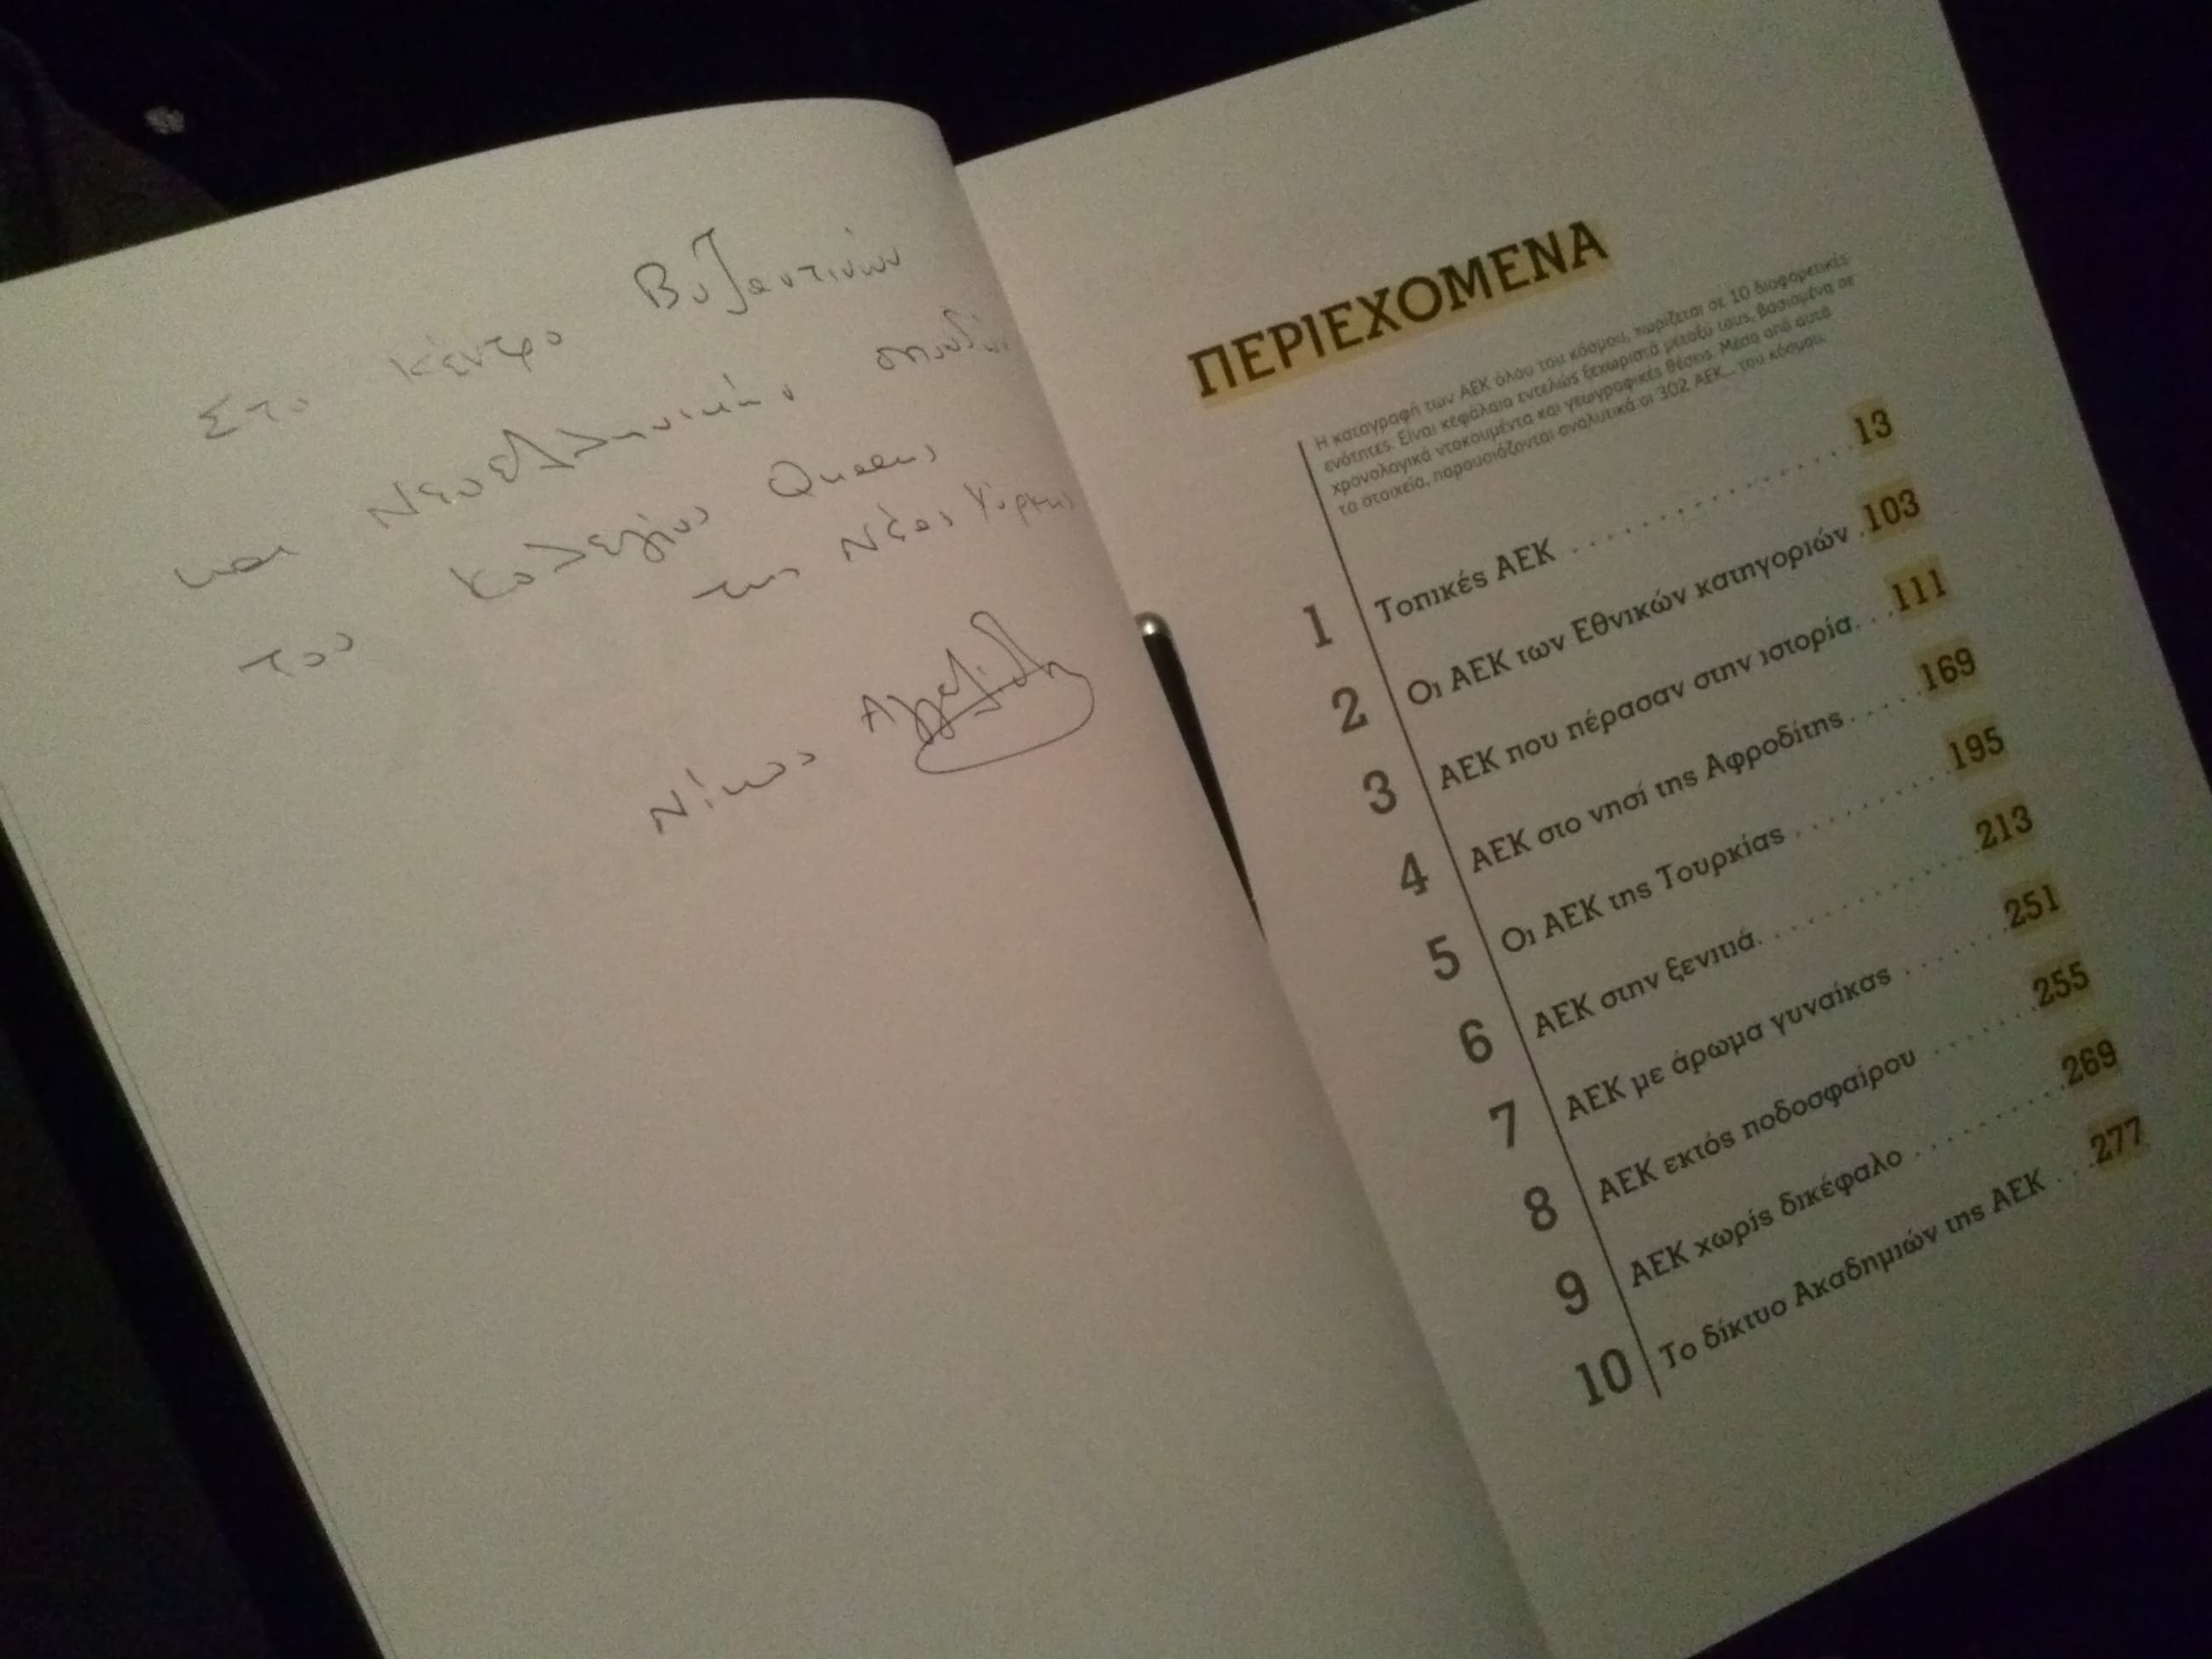 Στο κέντρο Βυζαντινών
και Νεοελληνικών σπουδών
του Κολεγίου Queens
της Νέας Υόρκης
Νίκος
ΠΕΡΙΕΧΟΜΕΝΑ
Η καταγραφή των ΑΕΚ όλου του κόσμου, χωρίζεται σε 10 διαφορετικές
ενότητες. Είναι κεφάλαια εντελώς ξεχωριστά μεταξύ τους, βασισμένα σε
χρονολογικά ντοκουμέντα και γεωγραφικές θέσεις. Μέσα από αυτά
τα στοιχεία, παρουσιάζονται αναλυτικά οι 302 ΑΕΚ... του κόσμου.
1 Τοπικές ΑΕΚ . . . . . . . . . . . . . . . . . 13
2 Οι ΑΕΚ των Εθνικών κατηγοριών . 103
3 ΑΕΚ που πέρασαν στην ιστορία. . . 111
4 ΑΕΚ στο νησί της Αφροδίτης. . . . . 169
5 Οι ΑΕΚ της Τουρκίας . . . . . . . . . . 195
6 ΑΕΚ στην ξενιτιά. . . . . . . . . . . . . . 213
7 ΑΕΚ με άρωμα γυναίκας . . . . . . . 251
8 ΑΕΚ εκτός ποδοσφαίρου . . . . . . . 255
9 ΑΕΚ χωρίς δικέφαλο . . . . . . . . . . 269
10 Το δίκτυο Ακαδημιών της ΑΕΚ . . . 277